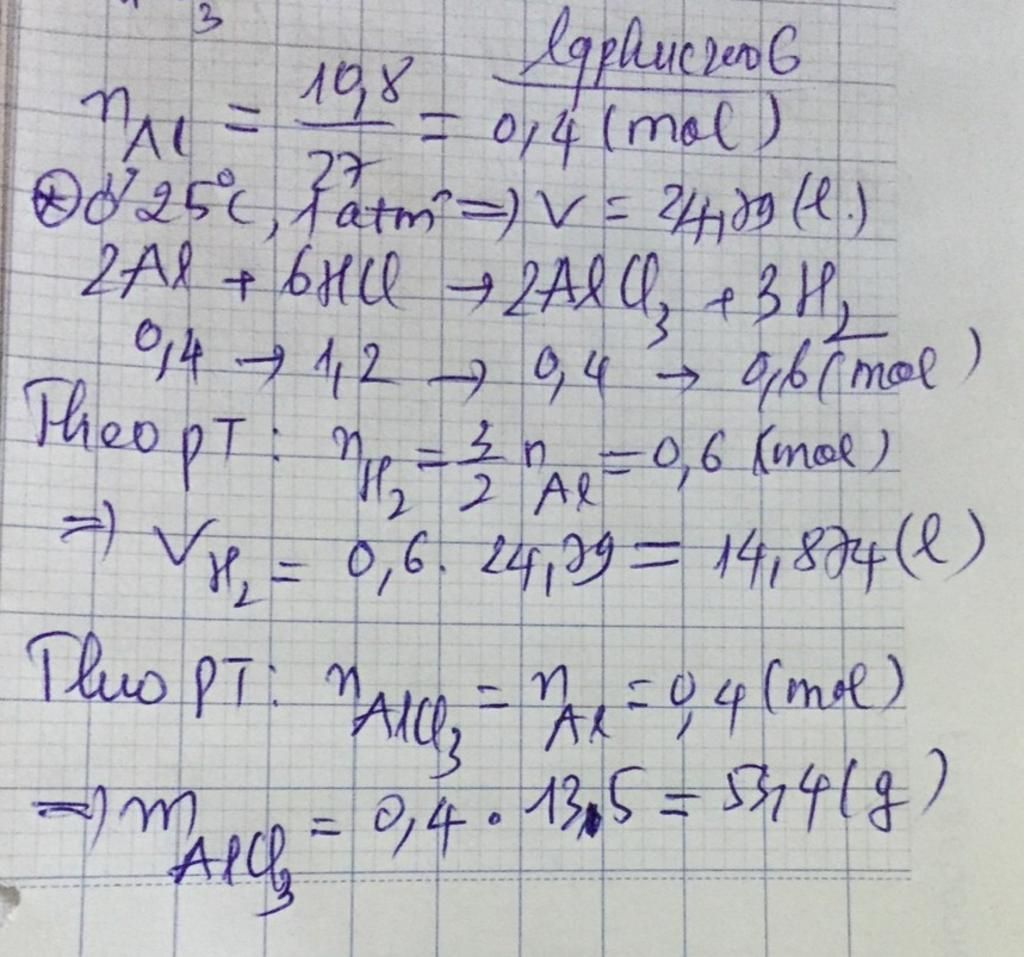 3
lgphuczero6
n_Al = 10,8/27 = 0,4 (mol)
⊛ ở 25°C, 1 atm => V = 24,79 (l.)
2Al + 6HCl → 2AlCl₃ + 3H₂
0,4 → 1,2 → 0,4 → 0,6 (mol)
Theo pT: n_H₂ = 3/2 n_Al = 0,6 (mol)
=> V_H₂ = 0,6. 24,79 = 14,874 (l)
Theo PT: n_AlCl₃ = n_Al = 0,4 (mol)
=> m_AlCl₃ = 0,4 . 13,5 = 53,4 (g)